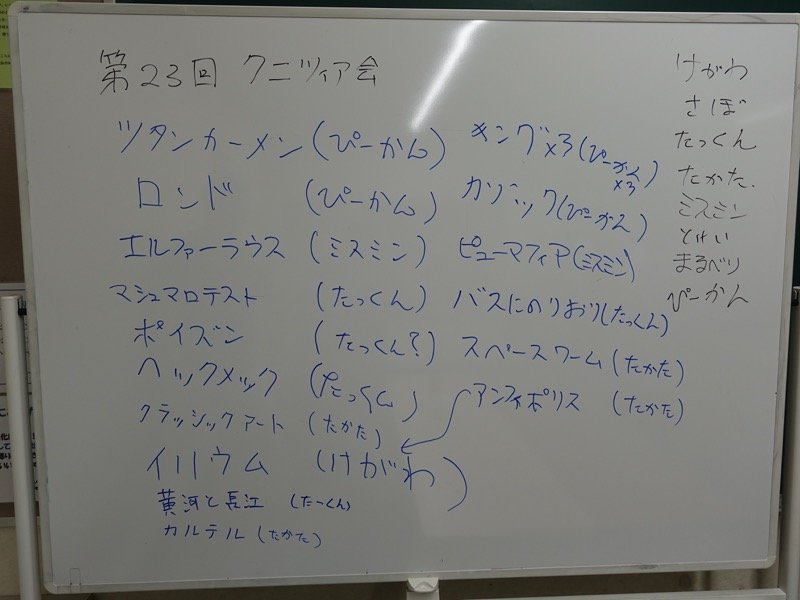 第23回 クニツィア会
ツタンカーメン (ぴーかん)
ロンド (ぴーかん)
エルファーラウス (ミスミン)
マシュマロテスト (たっくん)
ポイズン (たっくん?)
ヘックメック (たっくん)
クラッシックアート (たかた)
イリウム (けがわ)
黄河と長江 (たーくん)
カルテル (たかた)
キング×3 (ぴーかん×3)
(ぴーかん)
ピューマフィア (ミスミン)
バスにのりおり (たっくん)
スペースワーム (たかた)
アンフィポリス (たかた)
けがわ
さぼ
たっくん
たかた
ミスミン
とけい
まるべり
ぴーかん